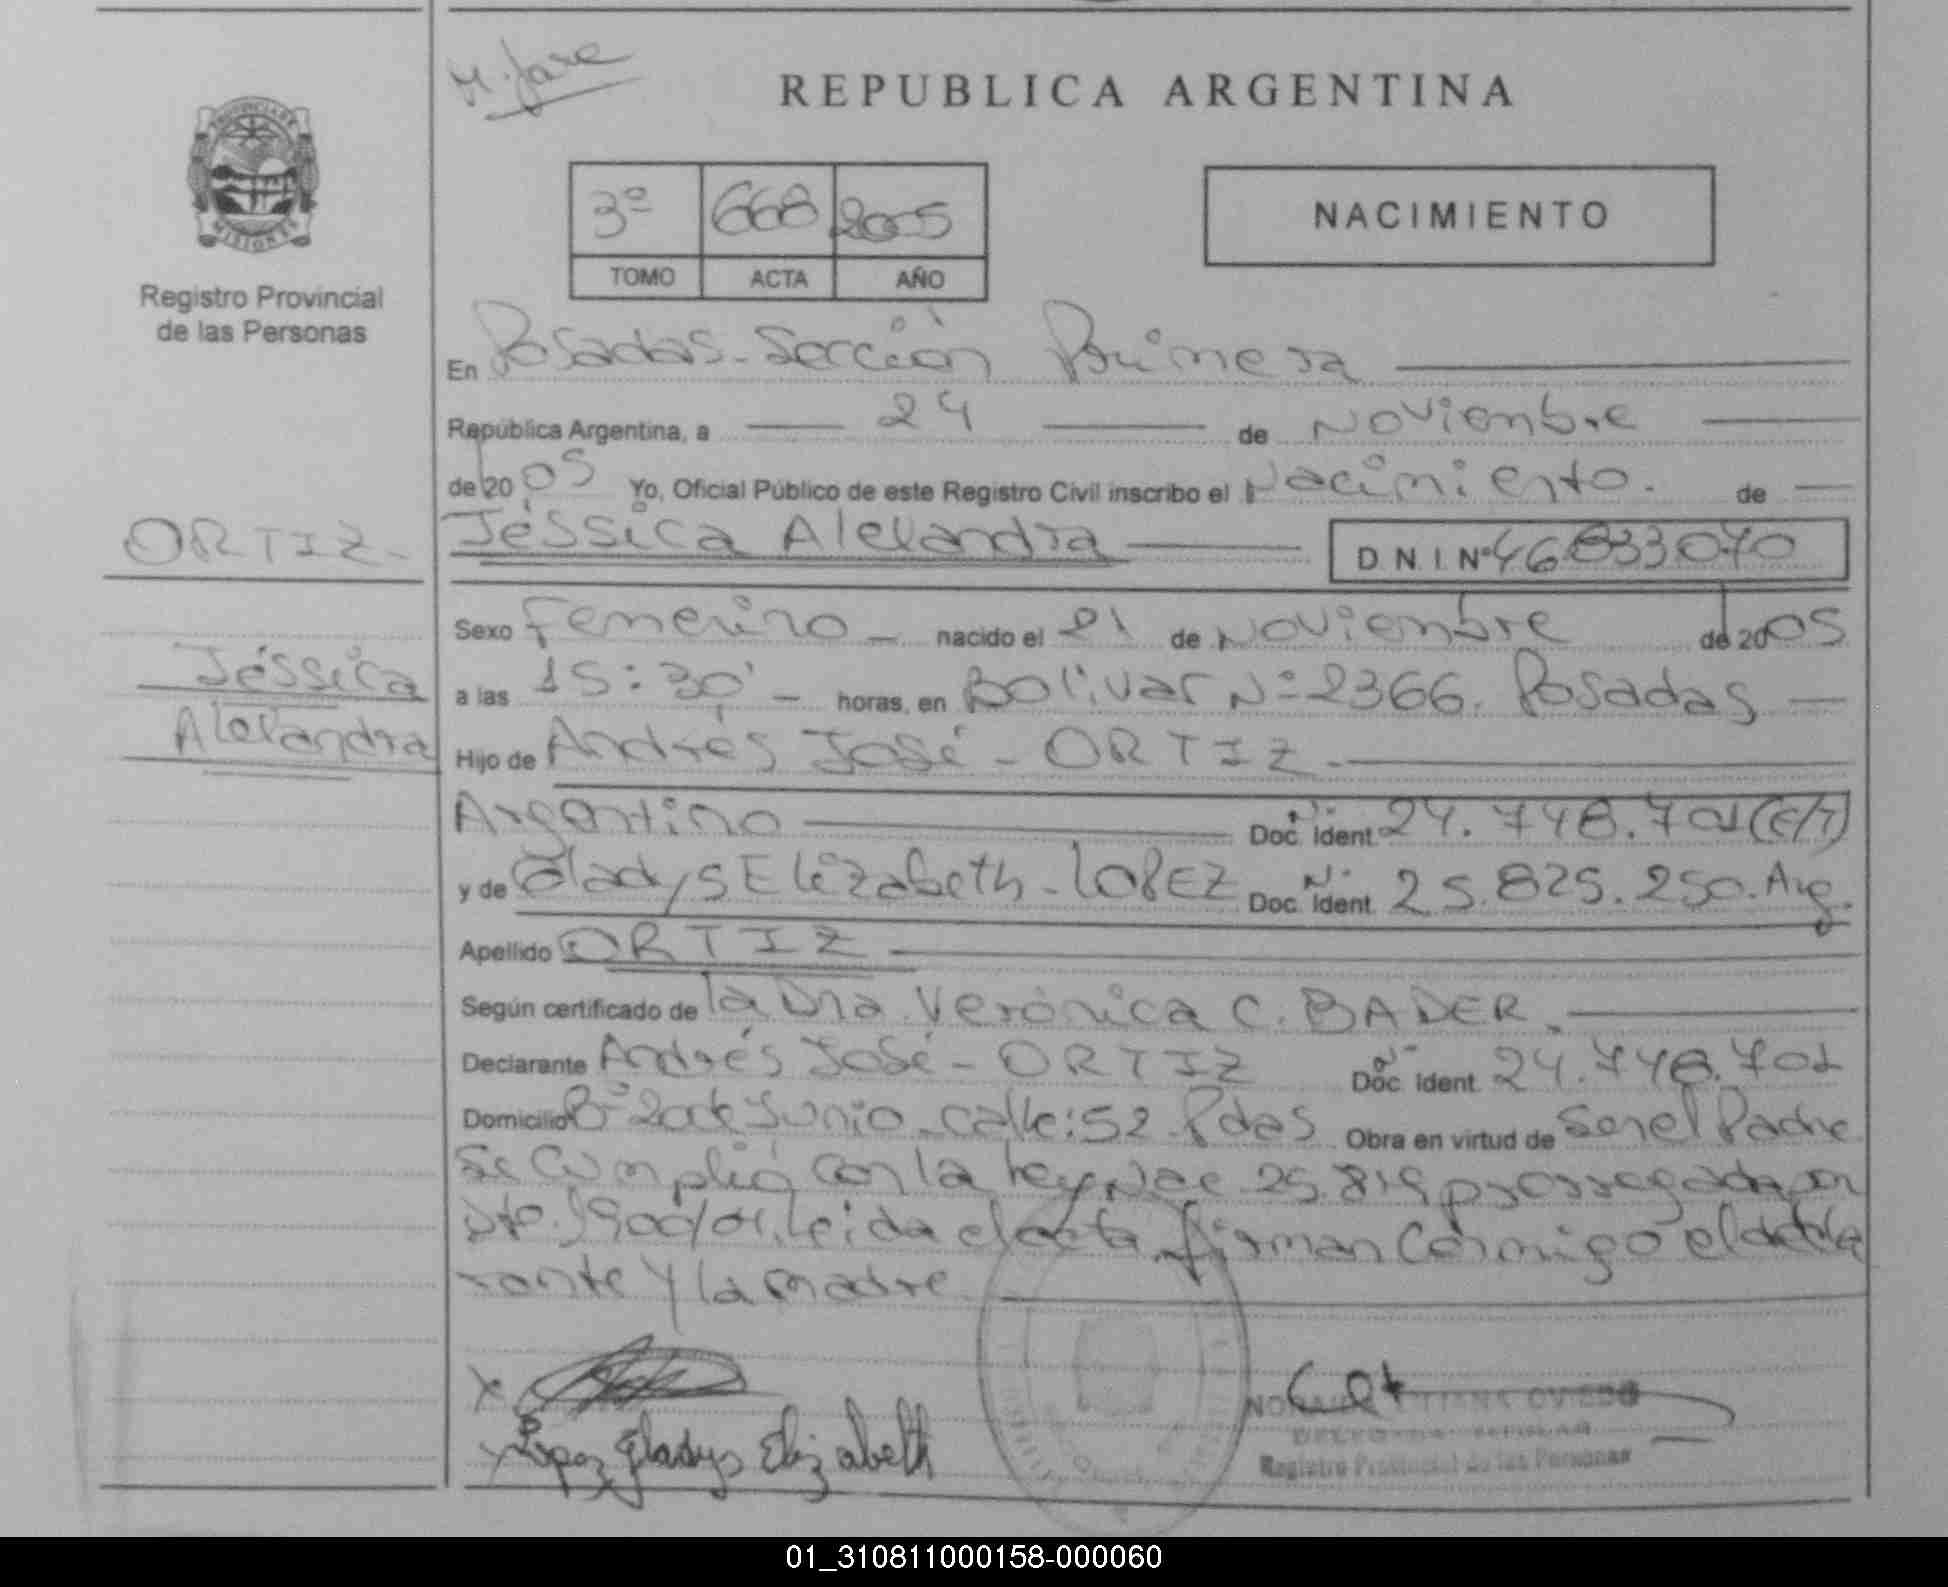 M. Jase
REPUBLICA ARGENTINA
PROVINCIA DE
MISIONES
Registro Provincial
de las Personas
3º 668 2005
TOMO ACTA AÑO
NACIMIENTO
En Posadas - Sección Primera
República Argentina, a 24 de Noviembre
de 2005 Yo, Oficial Público de este Registro Civil inscribo el Nacimiento. de
ORTIZ-
Jéssica Alelandra D.N.I. Nº 46833070
Sexo Femenino - nacido el 21 de Noviembre de 2005
Jéssica
Alelandra
a las 15:30' - horas, en Bolívar Nº 2366. Posadas
Hijo de Andrés José - ORTIZ -
Argentino Doc. Ident. Nº 24.748.701 (E/T)
y de Gladys Elizabeth - LOPEZ Doc. Ident. Nº 25.825.250. Arg.
Apellido ORTIZ
Según certificado de la Dra. Verónica C. BADER.
Declarante Andrés José - ORTIZ Doc. Ident. Nº 24.748.701
Domicilio Bº 20 de Junio - calle: 52 - Pdas Obra en virtud de Ser el Padre
Se Cumplió con la Ley Nac 25.819 prorrogada por
Dto. 1900/04. Leída el acta firman Conmigo el decla
rante y la madre
X
X Lopez Gladys Elizabeth
OVIEDO
Registro Provincial de las Personas
01_310811000158-000060